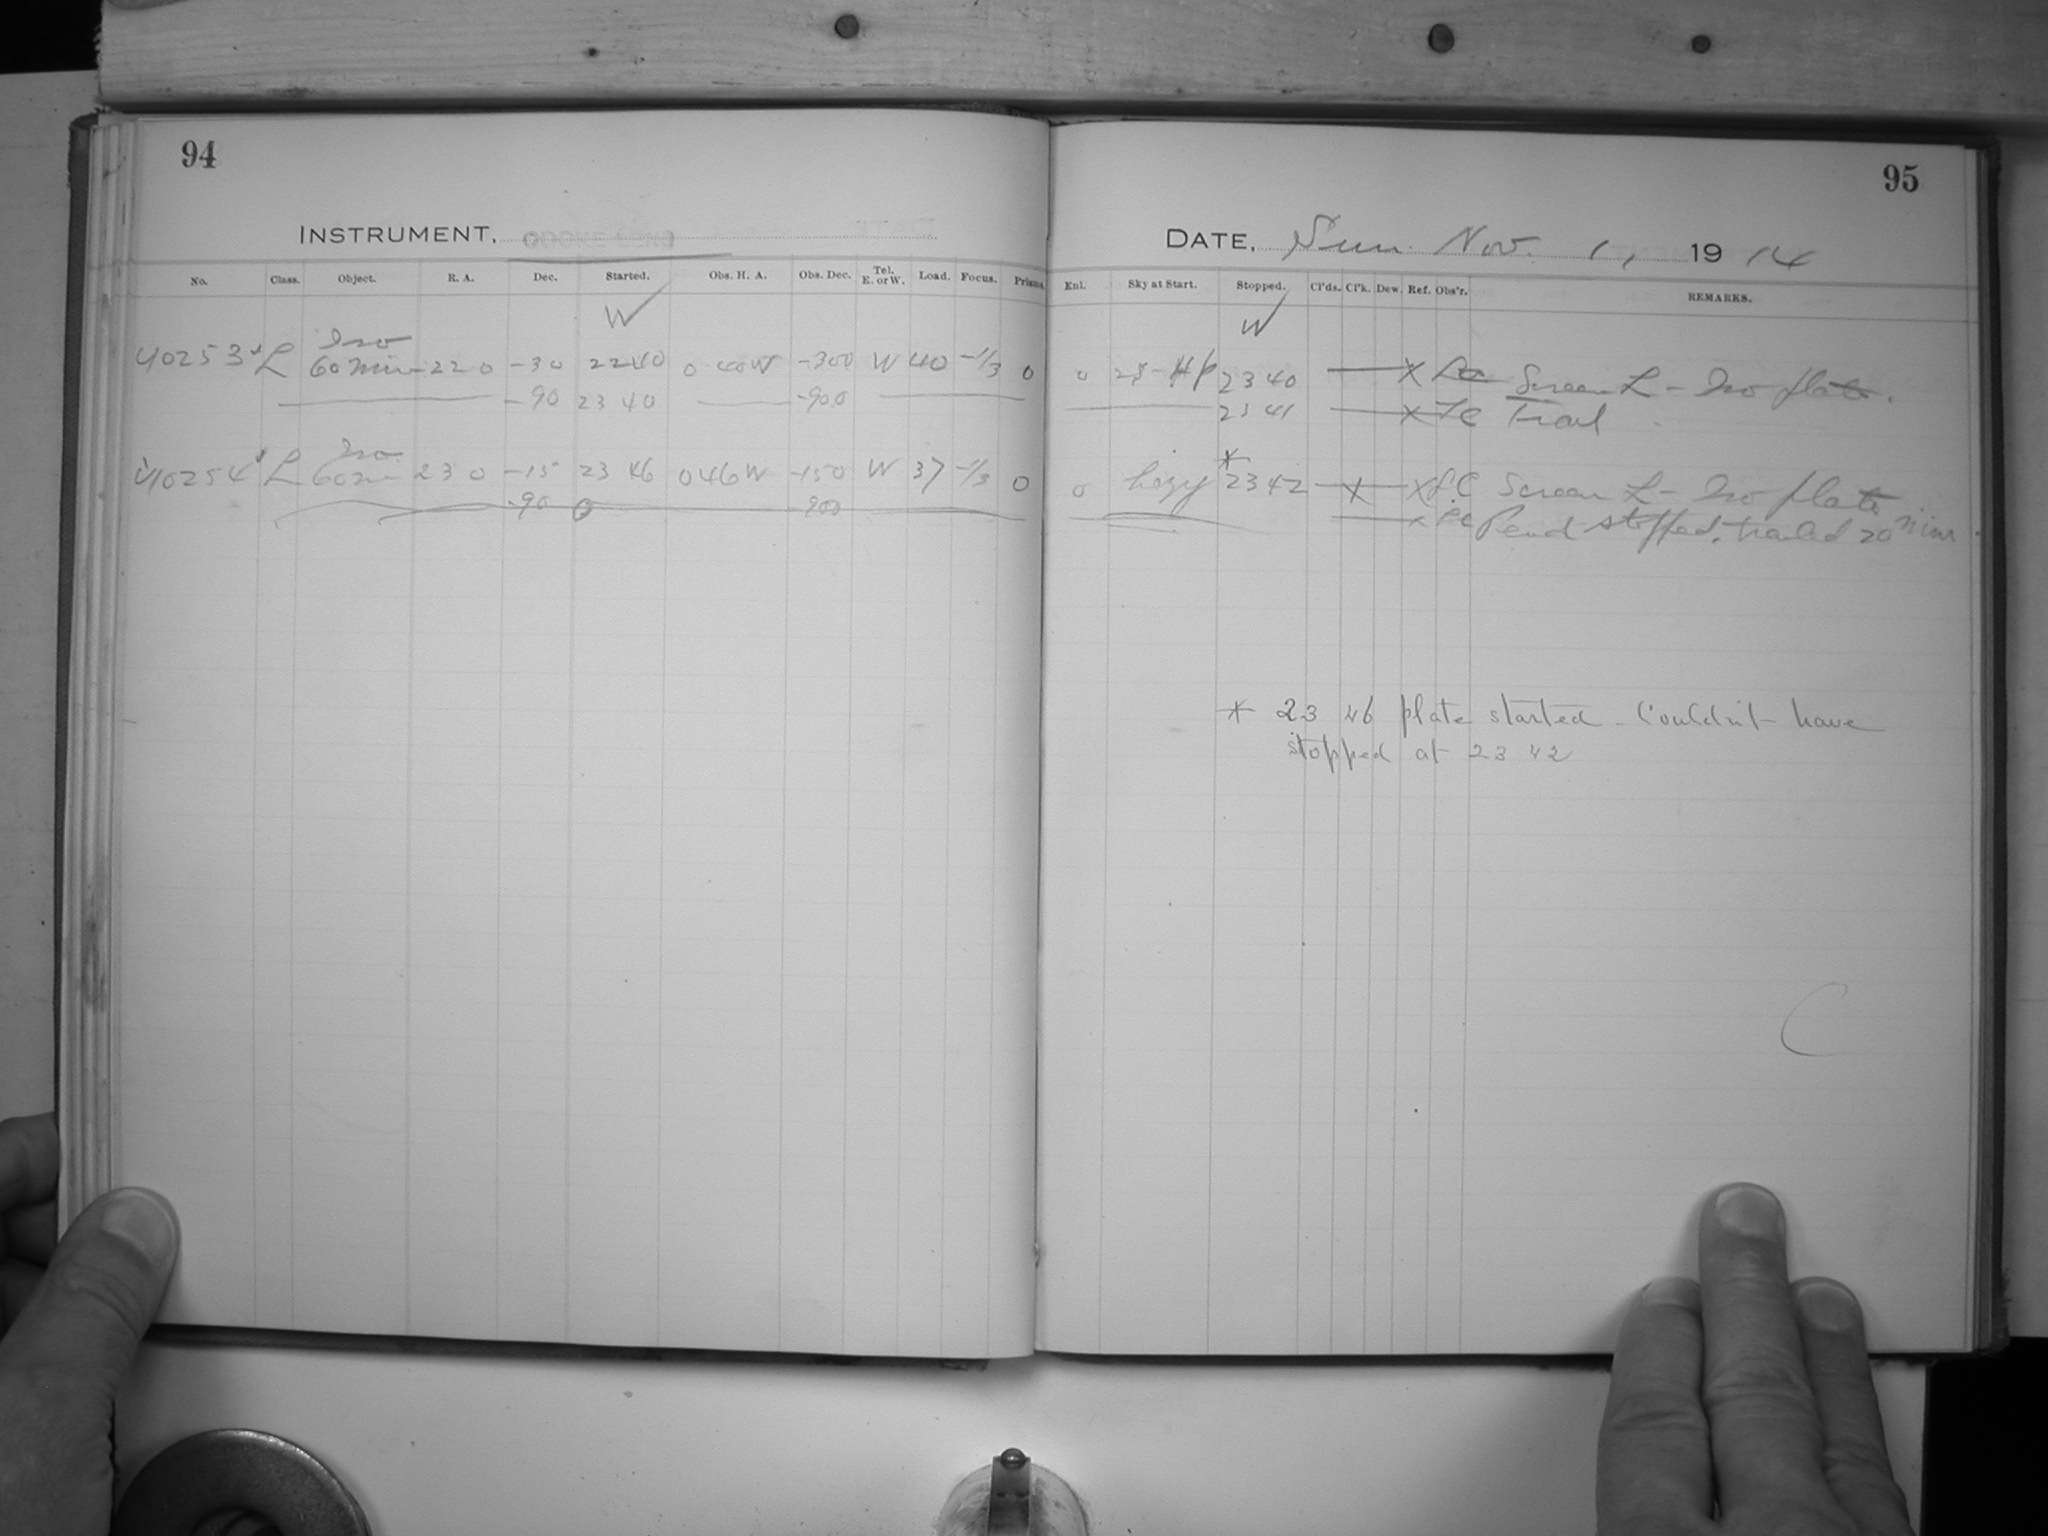 94
INSTRUMENT,
No. Class. Object. R. A. Dec. Started. Obs. H. A. Obs. Dec. Tel. E. or W. Load. Focus. Prisms
W
Iso
40253 L 60 min 22 0 -30 22 40 0 40 W -300 W 40 -1/3 0
-90 23 40 -900
Iso
40254 L 60 min 23 0 -15 23 46 0 46 W -150 W 37 -1/3 0
-90 0 -900
95
DATE, Sun. Nov. 1, 1914
Enl. Sky at Start. Stopped. Cl'ds. Cl'k. Dew. Ref. Obs'r. REMARKS.
W
0 23 40 X Screen L - Iso plate.
23 41 X Trail
*
0 hazy 23 42 X X L.C Screen L - Iso plate
x Pend stopped, trailed 20 mins
* 23 46 plate started - Couldn't have
stopped at 23 42
C